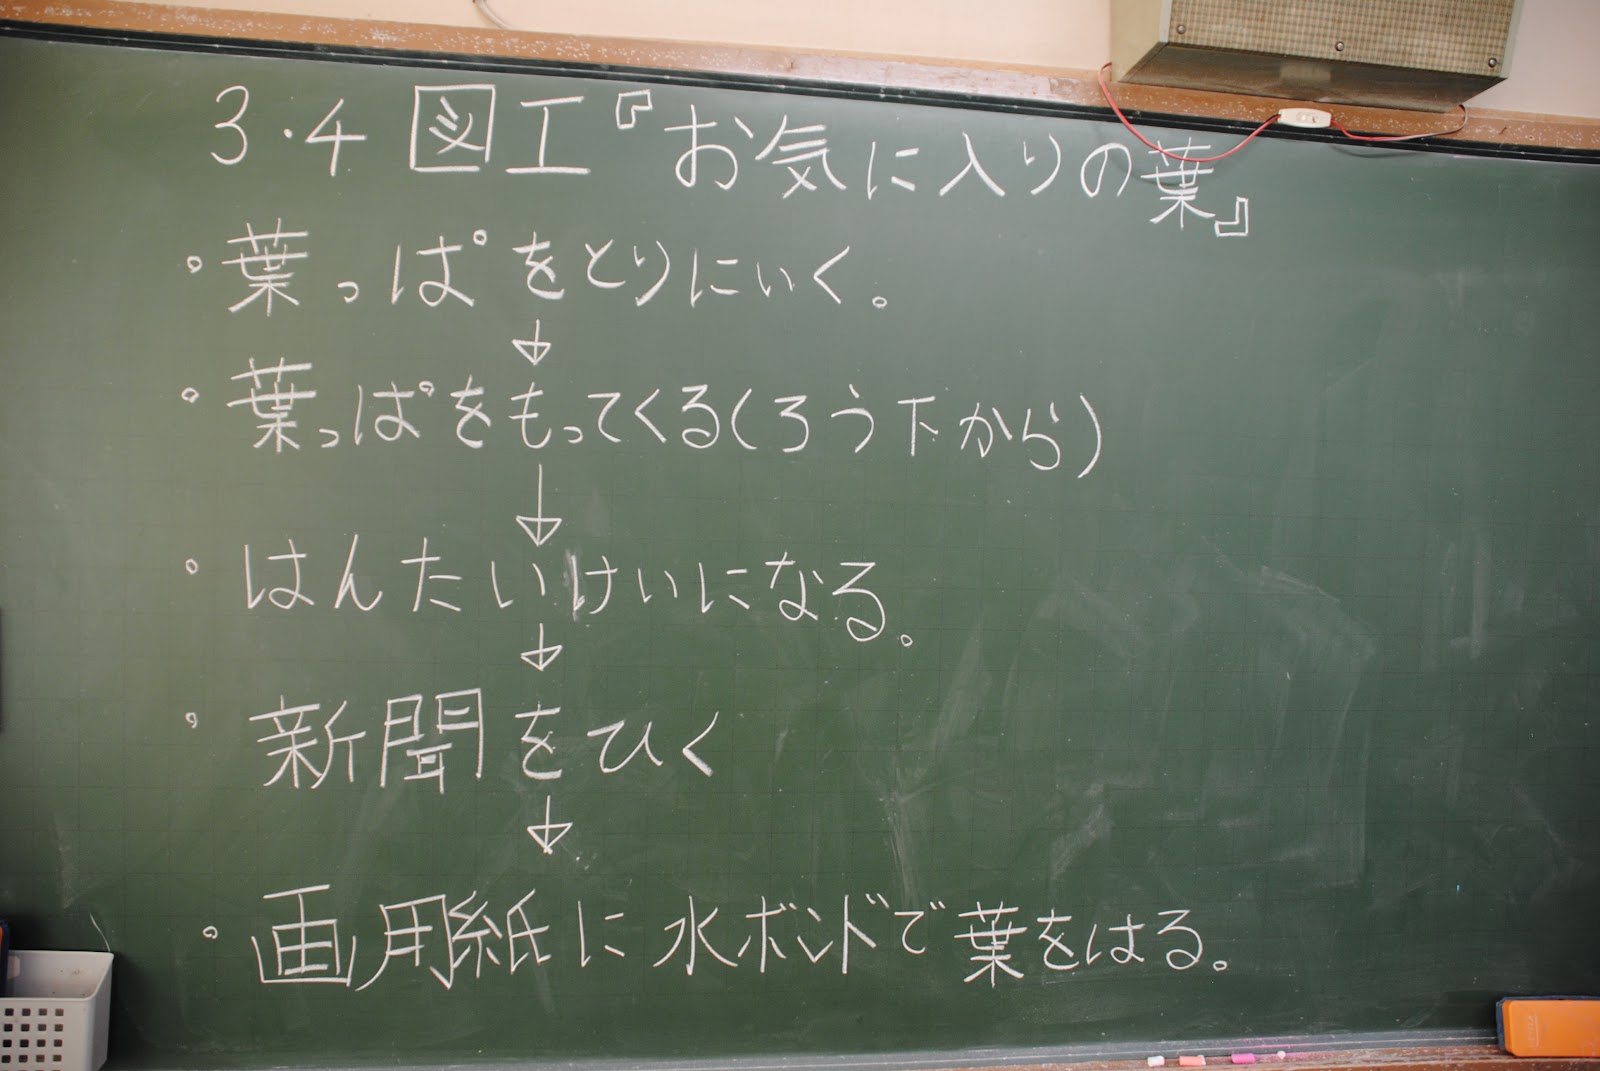 3・4 図工『お気に入りの葉』
・葉っぱをとりにいく。
↓
・葉っぱをもってくる(ろう下から)
↓
・はんたいけいになる。
↓
・新聞をひく
↓
・画用紙に水ボンドで葉をはる。